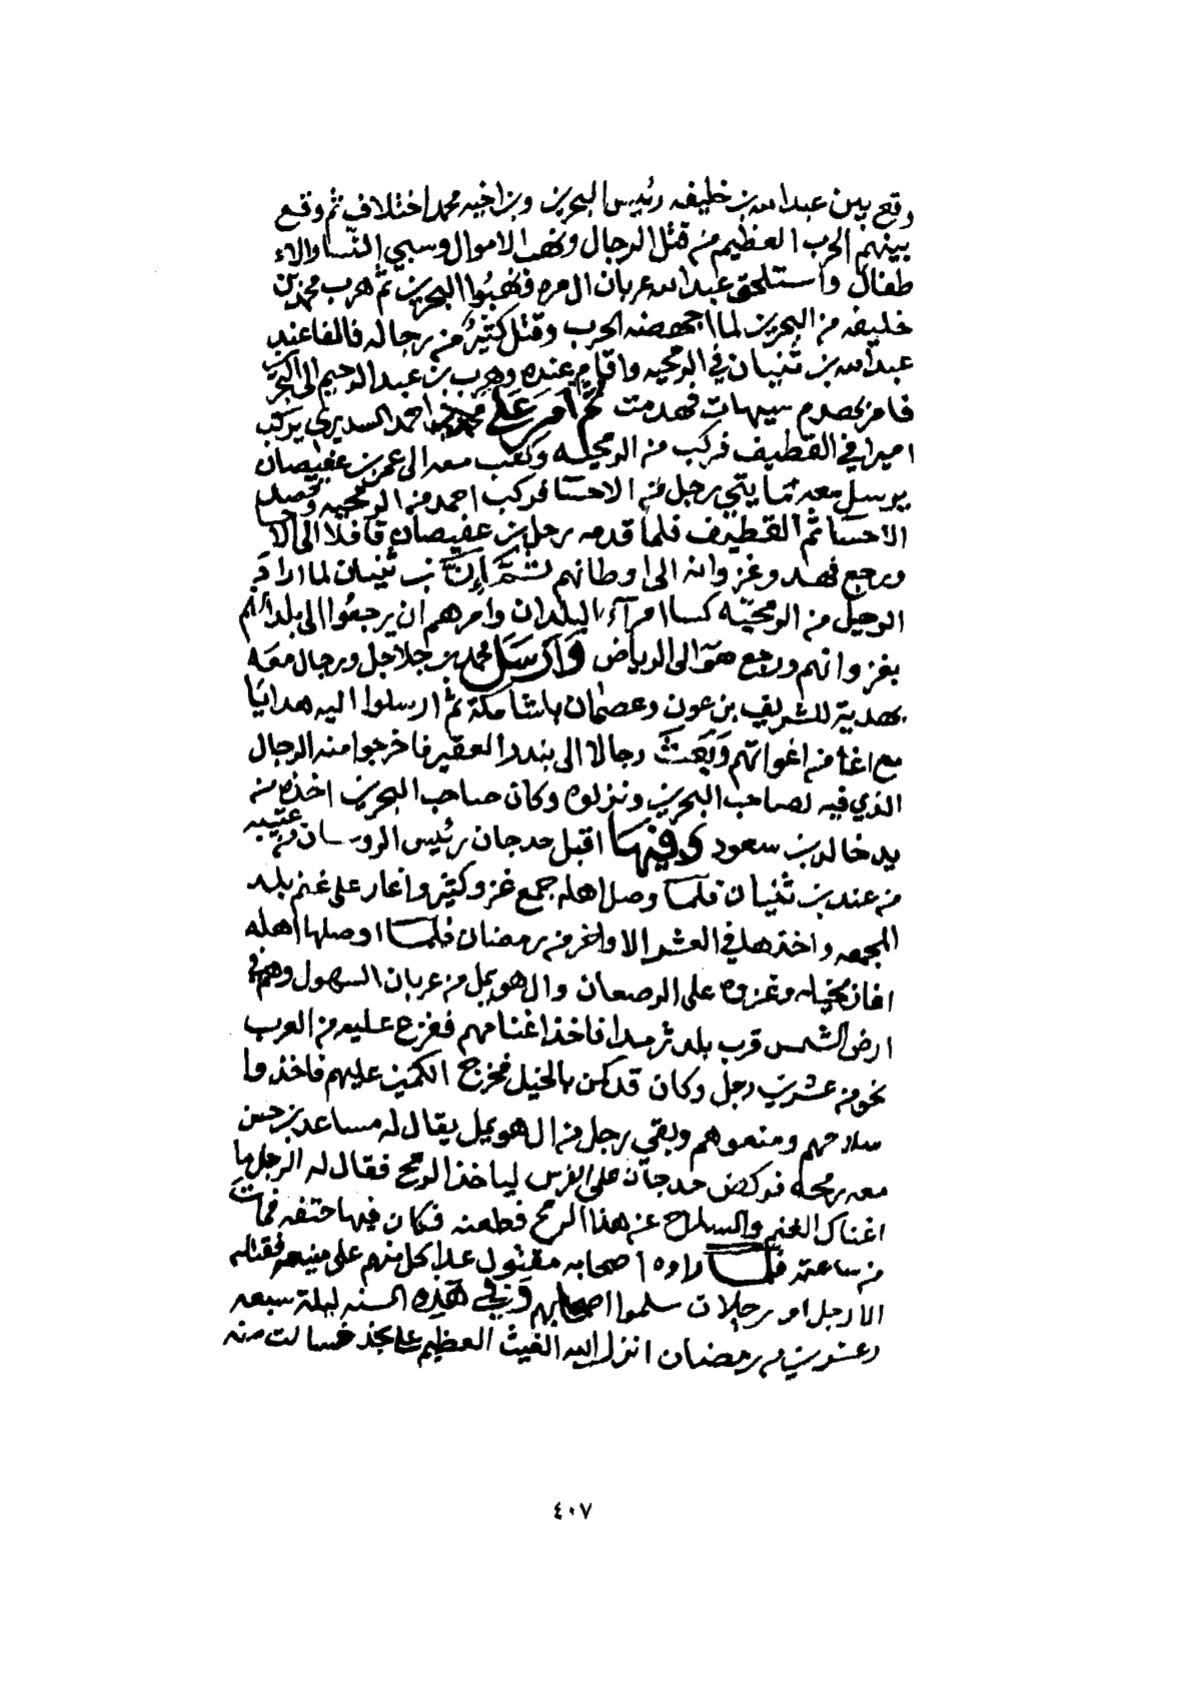 وقع بين عبدالله بن خليفه رئيس البحرين وبن اخيه محمد اختلاف ثم وقع
بينهم الحرب العظيم من قتل الرجال ونهب الاموال وسبي النسا والاء
طفال واستلحق عبدالله عربان ال مره فنهبوا البحرين ثم هرب محمد بن
خليفه من البحرين لما اجهضه الحرب وقتل كثير من رجاله فالفا عند
عبدالله بن ثنيان في الرمحيه واقام عنده وهرب بن عبدالرحيم الى البحرين
فامر بحصدم سيهات فهدمت ثم امر على احمد السديري يركب
اميرا في القطيف فركب من الرمحيه وكتب معه الى عمر بن عفيصان
يرسل معه مايتي رجل من الاحسا فركب احمد من الرمحيه وقصد
الاحسا ثم القطيف فلما قدمه رحل بن عفيصان قافلا الى الاحسا
ورجع فهد وغزوانه الى اوطانهم ثم إن بن ثنيان لما اراد
الرحيل من الرمحيه كسا امرآء البلدان وامرهم ان يرجعوا الى بلدانهم
بغزوانهم ورجع هو الى الرياض وارسل محمد بن جلاجل ورجال معه
بهدية للشريف بن عون وعصمان باشا مكة ثم ارسلوا اليه هدايا
مع اغا من اغواتهم وبعث رجالا الى بندر العقير فاخرجوا منه الرجال
الذي فيه لصاحب البحرين ونزلوه وكان صاحب البحرين اخذه من
يد خالد بن سعود وفيها اقبل حدجان رئيس الروسان من عتيبه
من عند بن ثنيان فلما وصل اهله جمع غزو كثير واغار على غنم بلد
المجمعه واخذها في العشر الاواخر من رمضان فلما اوصلها اهله
اغار بخياله وغزوه على الرصعان وال هويمل من عربان السهول وهم في
ارض الشمس قرب بلد ثرمدا فاخذ اغنامهم ففزع عليه من العرب
نحو من عشرين رجل وكان قد كمن بالخيل فخرج الكمين عليهم فاخذوا
سلاحهم ومنعوهم وبقي رجل من ال هويمل يقال له مساعد بن حسن
معه رمحه فركض حدجان على الفرس لياخذ الرمح فقال له الرجل ما
اغناك الغنم والسلاح عن هذا الرمح فطعنه فكان فيها حتفه فمات
من ساعته فلما راوه اصحابه مقتول عدا كل منهم على منيعه فقتله
الا رجل او رجلان سلموا اصحابهم وفي هذه السنه ليلة سبعه
وعشرين من رمضان انزل الله الغيث العظيم على نجد فسالت منه
٤٠٧